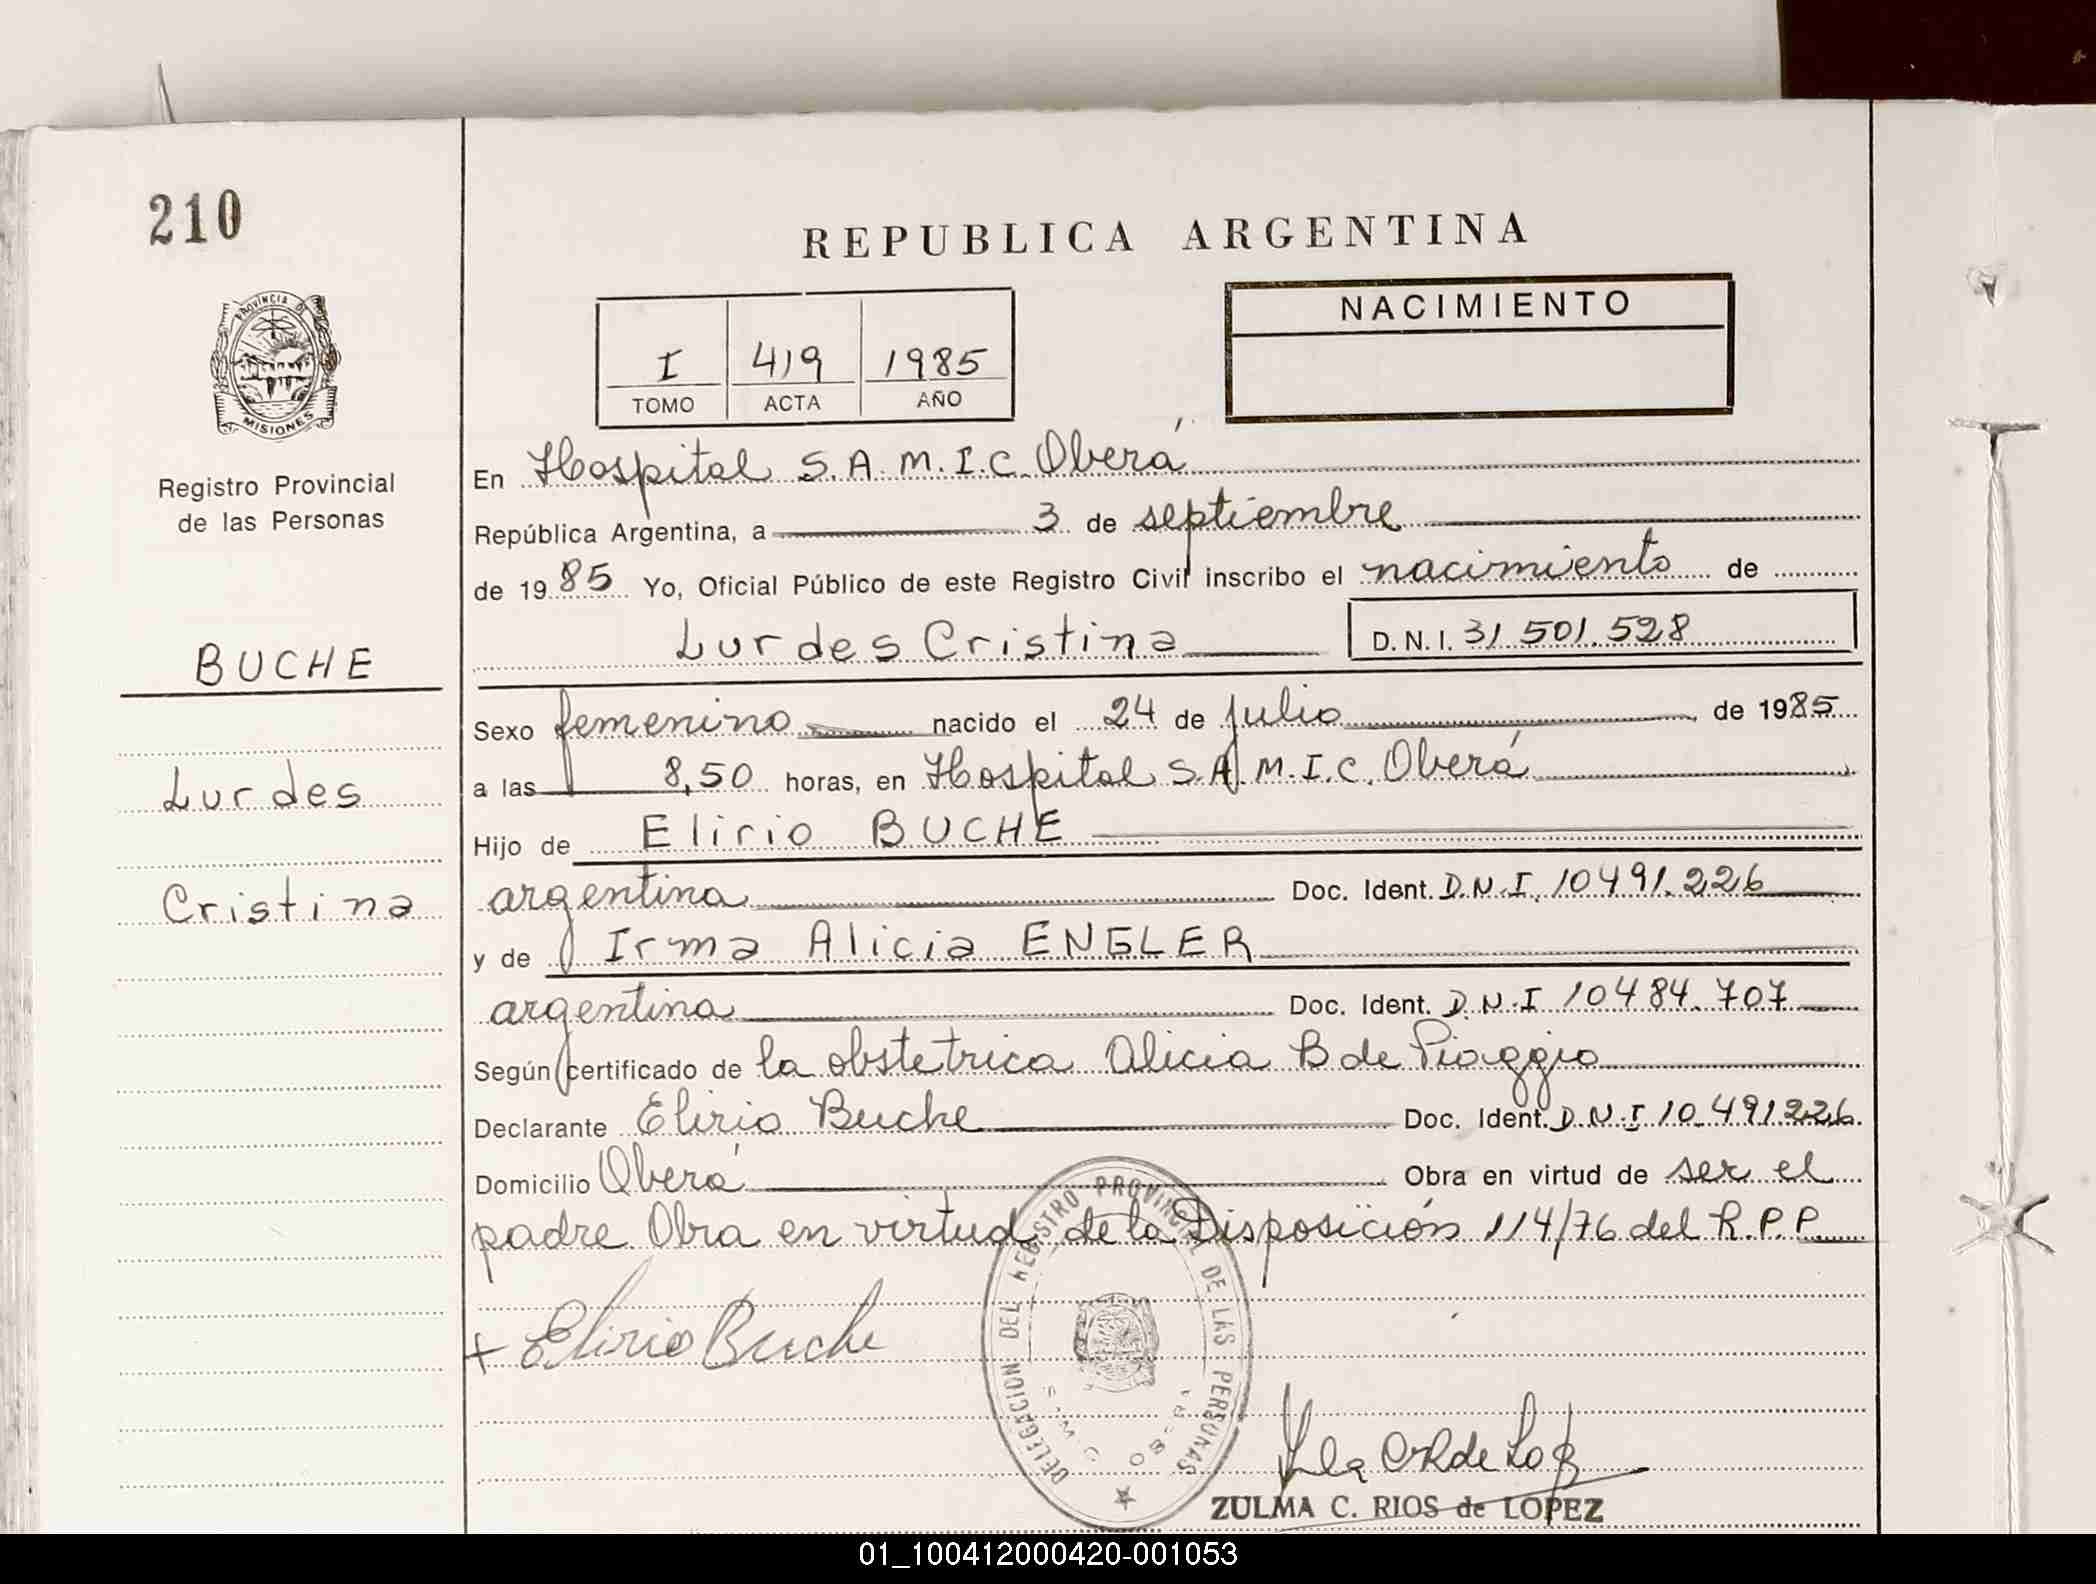 210
REPUBLICA ARGENTINA
PROVINCIA DE
MISIONES
Registro Provincial
de las Personas
I 419 1985
TOMO ACTA AÑO
NACIMIENTO
En Hospital S.A.M.I.C. Oberá
República Argentina, a 3 de septiembre
de 1985 Yo, Oficial Público de este Registro Civil inscribo el nacimiento de
Lurdes Cristina D.N.I. 31.501.528
BUCHE
Lurdes
Cristina
Sexo femenino nacido el 24 de julio de 1985
a las 8,50 horas, en Hospital S.A.M.I.C. Oberá
Hijo de Elirio BUCHE
argentina Doc. Ident. D.N.I. 10491.226
y de Irma Alicia ENGLER
argentina Doc. Ident. D.N.I 10484.707
Según certificado de la obstetrica Alicia B de Piaggio
Declarante Elirio Buche Doc. Ident. D.N.I 10.491226
Domicilio Oberá Obra en virtud de ser el
padre Obra en virtud de la Disposición 114/76 del R.P.P.
+ Elirio Buche
DELEGACION DEL REGISTRO PROVINCIAL DE LAS PERSONAS
ZULMA C. RIOS de LOPEZ
01_100412000420-001053